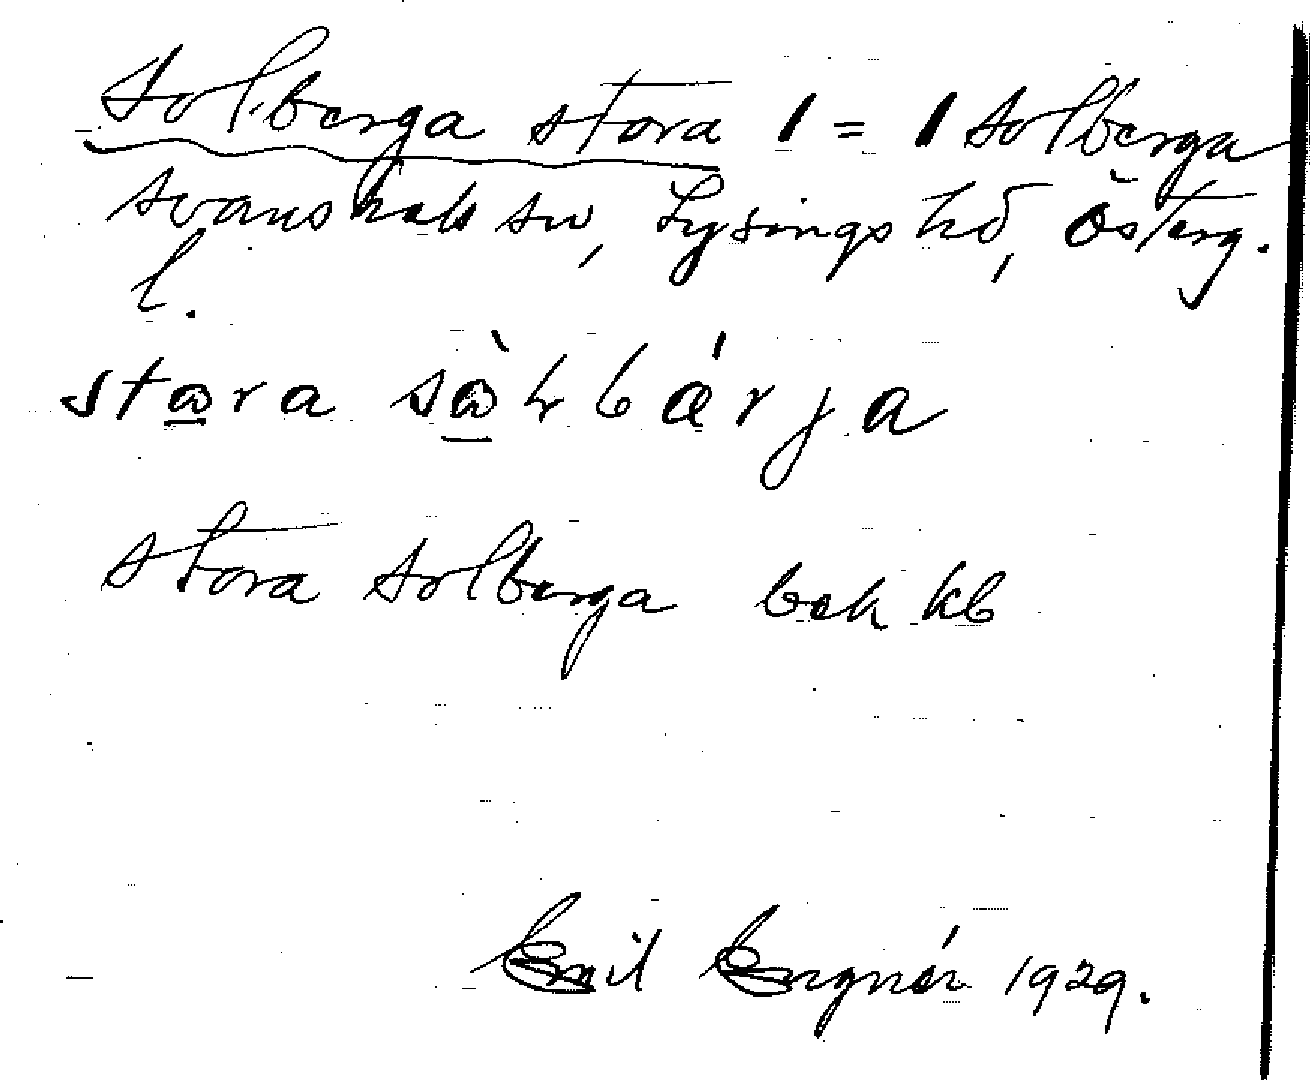 Solberga stora 1 = 1 Solberga
Svanshals sn, Lysings hd, Österg.
l.
stora sòlbärja
Stora Solberga bek kb
Emil Engnér 1929.